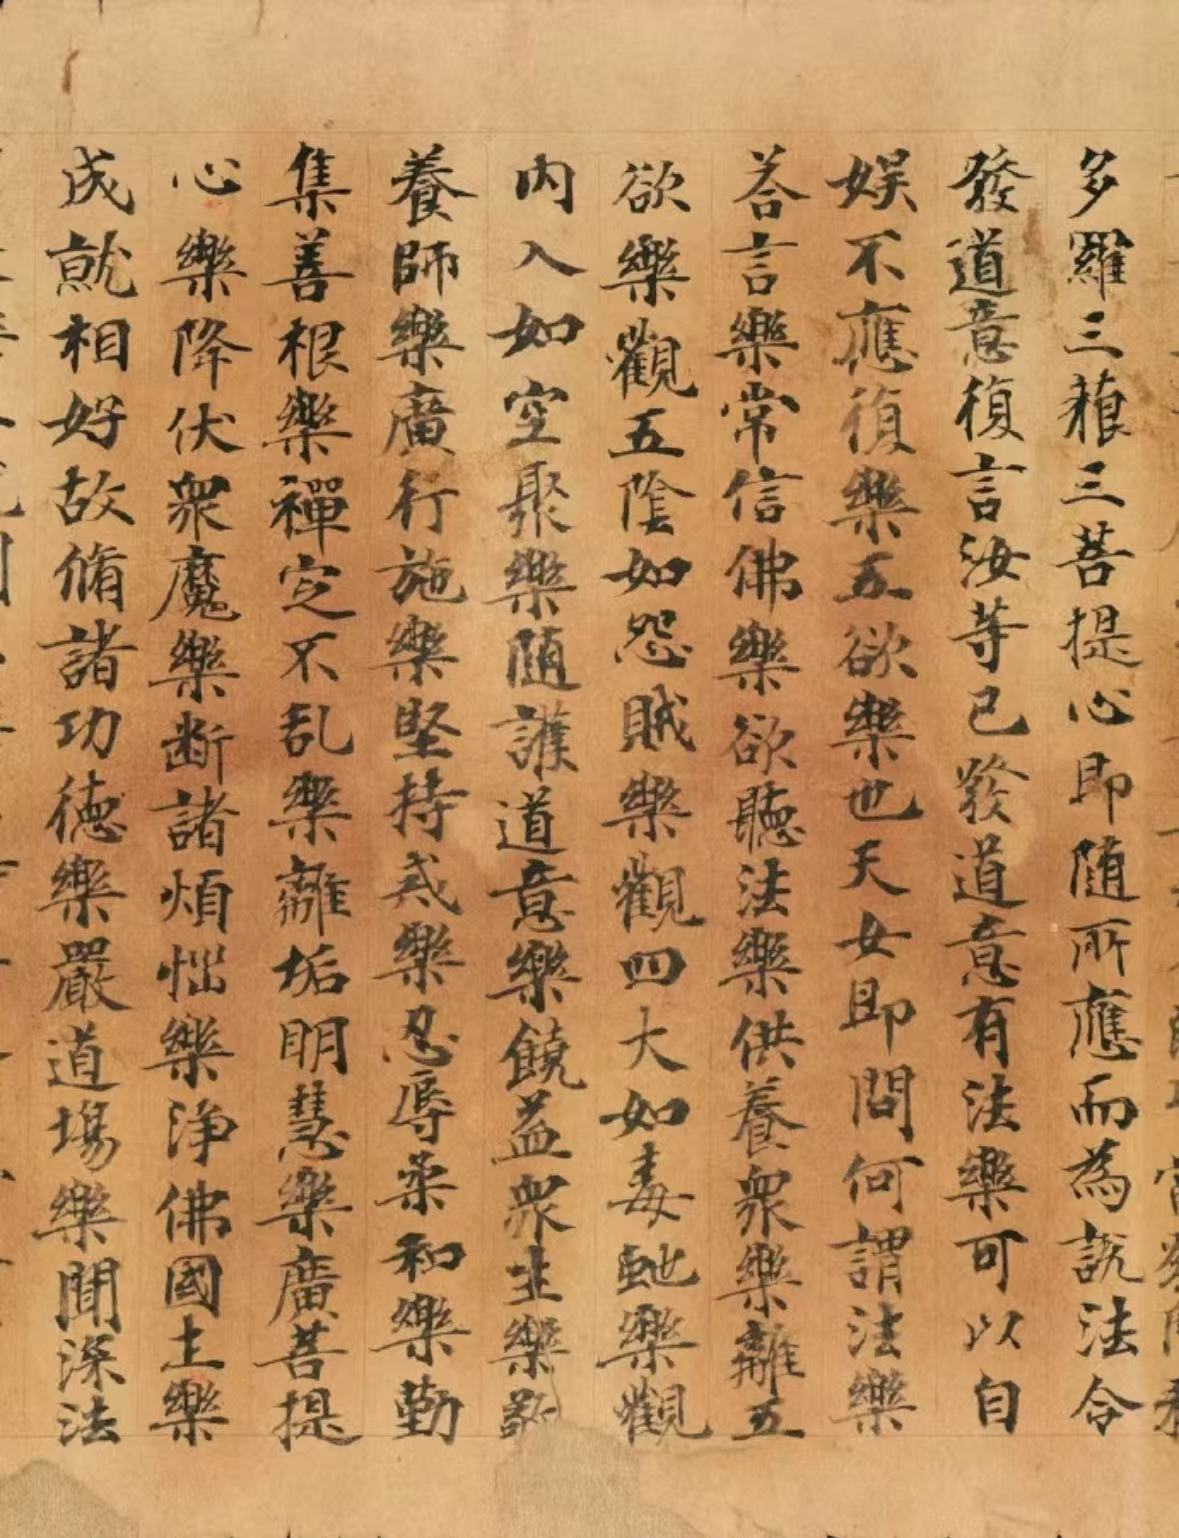 多羅三藐三菩提心即随所應而為說法令
發道意復言汝等已發道意有法樂可以自
娱不應復樂五欲樂也天女即問何謂法樂
荅言樂常信佛樂欲聽法樂供養衆樂離五
欲樂觀五陰如怨賊樂觀四大如毒虵樂觀
内入如空聚樂随護道意樂饒益衆生樂敬
養師樂廣行施樂堅持戒樂忍辱柔和樂勤
集善根樂禪定不乱樂離垢明慧樂廣菩提
心樂降伏衆魔樂断諸煩惱樂淨佛國土樂
成就相好故脩諸功德樂嚴道場樂聞深法